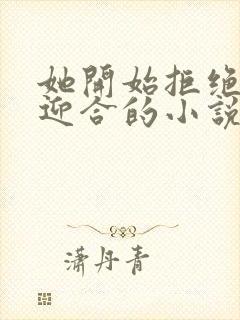 她開始拒絕
迎合的小說
瀟丹青